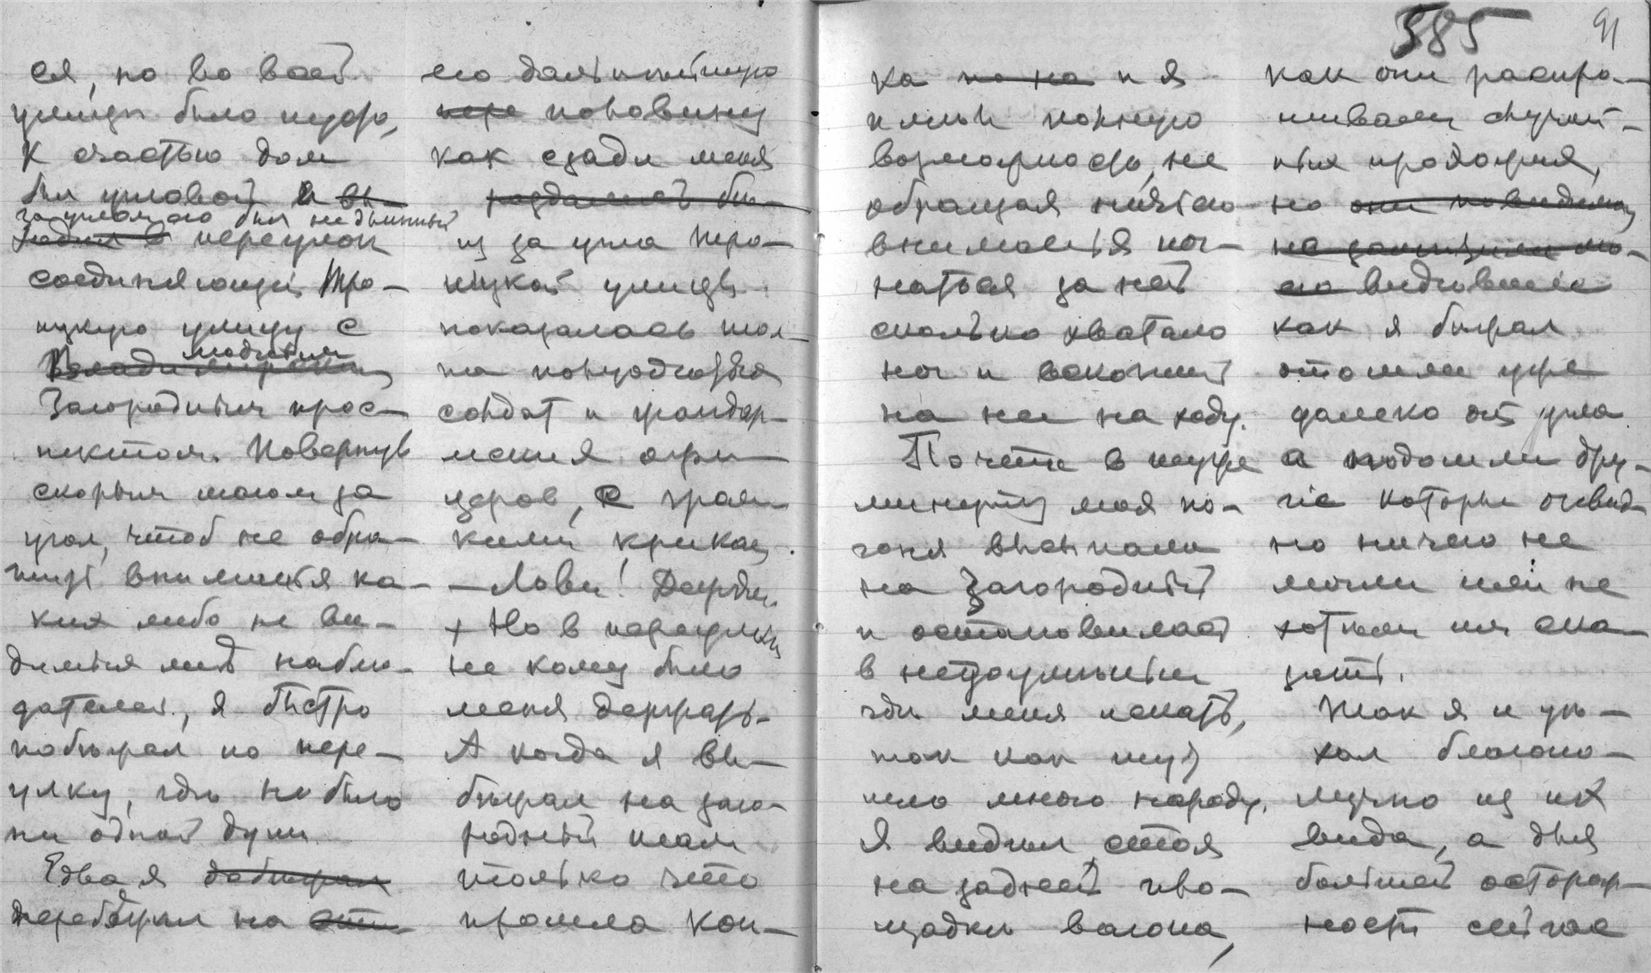 ся, но во всей
улице было пусто,
К счастью дом
был угловой и вы-
за углом его был не длинный
ходил в переулок
соединяющий Тро-
ицкую улицу с
людным
Владимирским
Загородным прос-
пектом. Повернув
скорым шагом за
угол, чтоб не обра-
тить внимания ка-
ких либо не ви-
димых мне наблю-
дателей, я быстро
побежал по пере-
улку, где не было
ни одной души
Едва я добежал
перебежал на
его дальнейшую
пере половину
как сзади меня
раздались
из за угла Тро-
ицкой улицы
показалась тол-
па полуодетых
солдат и жандарм-
ских офи-
церов, с гром-
кими криками.
— Лови! Держи.
+ Но в переулке
не кому было
меня держать.
А когда я вы-
бежал на Заго-
родный там
только что
прошла кон-
585 91
ка и я
имел полную
возможность, не
обращая ничьего
внимания пог-
наться за ней
сколько хватало
ног и вскочить
на нее на ходу.
Почти в ту же
минуту моя по-
гоня высыпала
на Загородный
и остановилась
в недоумении
где меня искать,
так как тут
шло много народу.
Я видел стоя
на задней пло-
щадке вагона,
как они распра-
шивали случай-
ных прохожих,
но они повидимому
не заметили мо-
его видевшие
как я бежал
отошли уже
далеко от угла
а подошли дру-
гие которые очевид-
но ничего не
могли или не
хотели им ска-
зать.
Так я и уе-
хал благопо-
лучно из их
вида, а для
большей осторож-
ности сейчас